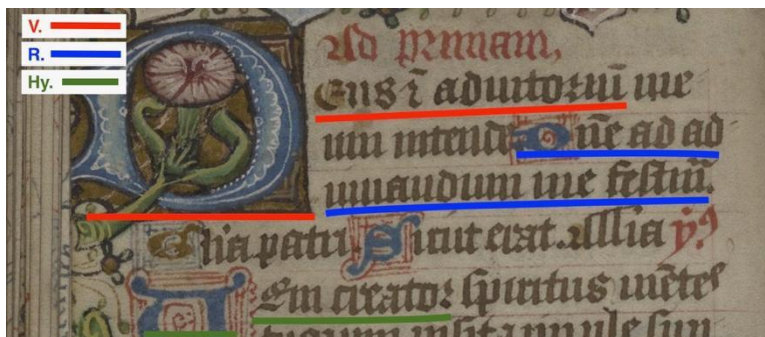 V.
R.
Hy.
Ad primam,
Deus ī adiutoriū me
um intende Dn̄e ad ad
iuuandum me festin̄.
Gl̄ia patri Sicut erat. All̄ia
Veni creator spiritus mētes
tuorum visita